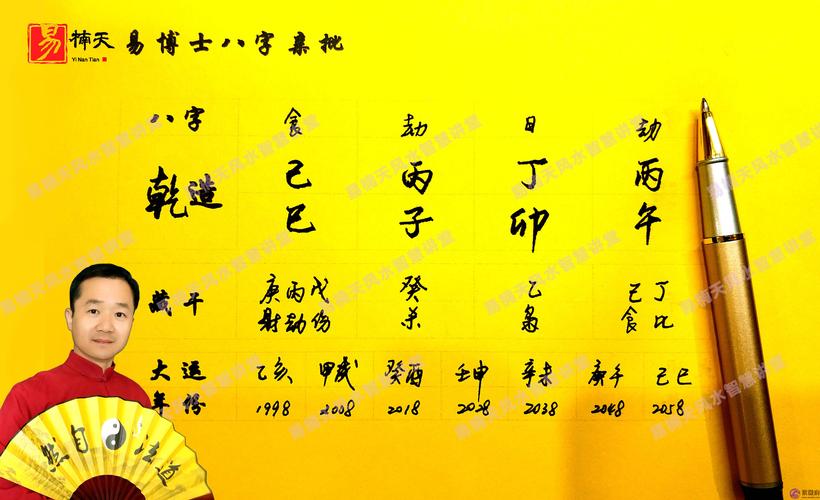 易 楠天 易博士八字集批
Yi Nan Tian
八字 食 劫 日 劫
乾造 己 丙 丁 丙
巳 子 卯 午
藏干 庚丙戊 癸 乙 己丁
财劫伤 杀 枭 食比
大运 乙亥 甲戌 癸酉 壬申 辛未 庚午 己巳
年份 1998 2008 2018 2028 2038 2048 2058
易楠天风水智慧讲堂
道法自然